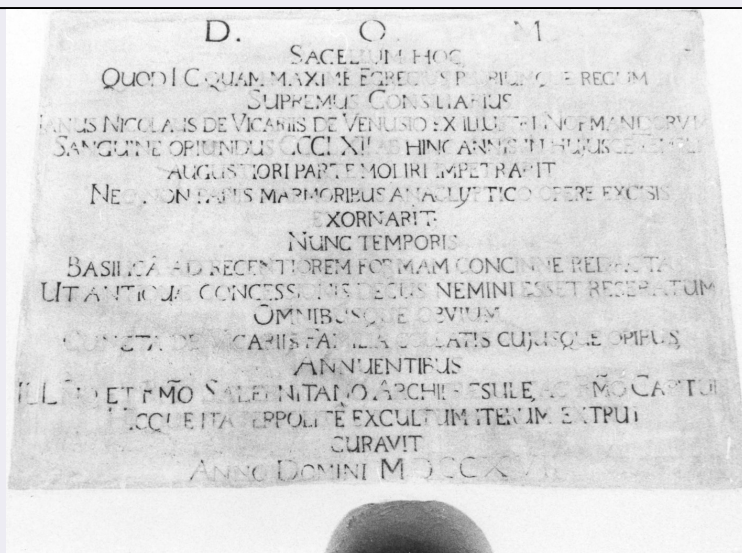 D. O. M.
SACELLUM HOC
QUOD I C QUAM MAXIME EGREGIUS REGUM
SUPREMUS CONSILIARIUS
IANUS NICOLAUS DE VICARIIS DE VENUSIO EX ILLUSTRI NORMANDORUM
SANGUINE ORIUNDUS CCCLXII HINC ANNIS IN HUJUSCE TEMPLI
AUGUSTIORI PARTE MOLIRI IMPETRARIT
NEC NON PARIIS MARMORIBUS ANAGLYPTICO OPERE EXCISIS
EXORNARIT
NUNC TEMPORIS
BASILICA AD RECENTIOREM FORMAM CONCINNE REDACTA
UT ANTIQUÆ CONCESSIONIS DECUS NEMINI ESSET RESERATUM
OMNIBUSQUE OBVIUM
CUNCTA DE VICARIIS FAMILIA COLLATIS CUJUSQUE OPIBUS
ANNUENTIBUS
ILLMO ET RMO SALERNITANO ARCHIPRESULE, AC RMO CAPITUL
ITA PERPOLITE EXCULTUM ITERUM EXTRUI
CURAVIT
ANNO DOMINI